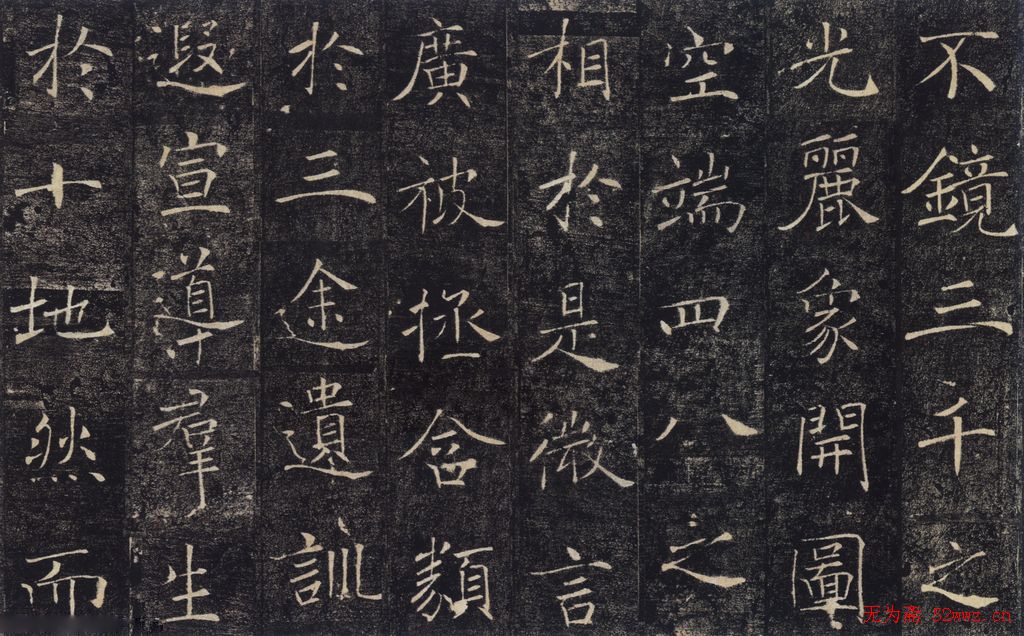 不鏡三千之
光麗象開圖
空端四八之
相於是微言
廣被拯含類
於三途遺訓
遐宣導羣生
於十地然而
无为斋 52wwz.cn